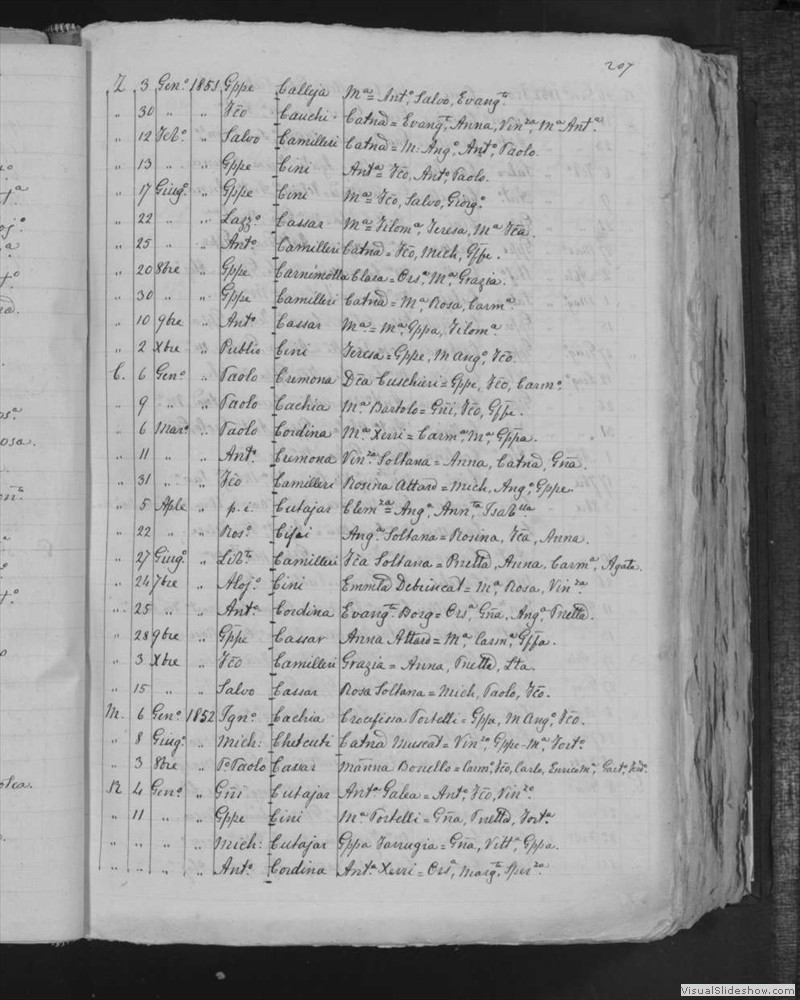 207
Z 3 Gen.o 1851 Gppe Calleja M.a = Ant.o, Salvo, Evang.ta
" 30 " " Fc̃o Cauchi Catnã = Evang.ta, Anna, Vin.za, M.a Ant.a
" 12 Feb.o " Salvo Camilleri Catnã = M. Ang.o, Ant.o, Paolo.
" 13 " " Gppe Cini Ant.a Fc̃o, Ant.o, Paolo.
" 17 Giug.o " Gppe Cini M.a = Fc̃o, Salvo, Giorg.o
" 22 " " Lazz.o Cassar M.a = Filom.a, Teresa, M.a Fc̃a.
" 25 " " Ant.o Camilleri Catnã = Fc̃o, Mich, Gppe.
" 20 8bre " Gppe Carnemolla Clara = Ors.a, M.a, Grazia.
" 30 " " Gppe Camilleri Catnã = M.a, Rosa, Carm.a
" 10 9bre " Ant.o Cassar M.a = M.a, Gppa, Filom.a
" 2 Xbre " Publio Cini Teresa = Gppe, M Ang.o, Fc̃o.
C. 6 Gen.o " Paolo Cremona Dc̃a Cuschieri = Gppe, Fc̃o, Carm.o
" 9 " " Paolo Cachia M.a Bartolo = Gñi, Fc̃o, Gppe.
" 6 Mar.o " Paolo Cordina M.a Xerri = Carm.a, M.a, Gppa.
" 11 " " Ant.o Cremona Vin.za Soltana = Anna, Catnã, Gña.
" 31 " " Fc̃o Camilleri Rosina Attard = Mich, Ang.o, Gppe.
" 5 Aple " p. i. Cutajar Clem.za = Ang.a, Ann.ta, Isab.lla
" 22 " " Ros.o Cifai Ang.a Soltana = Rosina, Fc̃a, Anna.
" 27 Giug.o " Lib.to Camilleri Fc̃a Soltana = Pnetta, Anna, Carm.a, Agata.
" 24 7bre " Aloj.o Cini Emmla Debrincat = M.a, Rosa, Vin.za
" 25 " " Ant.o Cordina Evang.ta Borg = Ors.a, Gña, Ang.a, Pnetta.
" 28 9bre " Gppe Cassar Anna Attard = M.a, Carm.a, Gppa.
" 3 Xbre " Fc̃o Camilleri Grazia = Anna, Pnetta, Lta.
" 15 " " Salvo Cassar Rosa Soltana = Mich, Paolo, Fc̃o.
M. 6 Gen.o 1852 Ign.o Cachia Crocefissa Portelli = Gppa, M Ang.o, Fc̃o.
" 8 Giug.o " Mich: Chetcuti Catnã Muscat = Vin.zo, Gppe - M.a, Fort.o
" 3 8bre " P.o Paolo Casar Mañna Bonello = Carm.o, Fc̃o, Carlo, Enrico M.a, Gaet.o
R 4 Gen.o " Gñi Cutajar Ant.a Galea = Ant.o, Fc̃o, Vin.zo
" 11 " " Gppe Cini M.a Portelli = Gña, Pnetta, Fort.a
" " " " Mich: Cutajar Gppa Farrugia = Gña, Vitt.a, Gppa.
" " " " Ant.o Cordina Ant.a Xerri = Ors.a, Marg.ta, Sper.za
VisualSlideshow.com